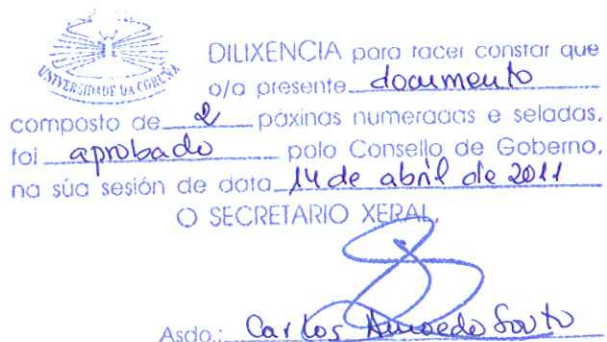 UNIVERSIDADE DA CORUÑA
DILIXENCIA para facer constar que
o/a presente documento
composto de 2 páxinas numeradas e seladas,
foi aprobado polo Consello de Goberno,
na súa sesión de data 14 de abril de 2011
O SECRETARIO XERAL,
Asdo.: Carlos Amoedo Souto